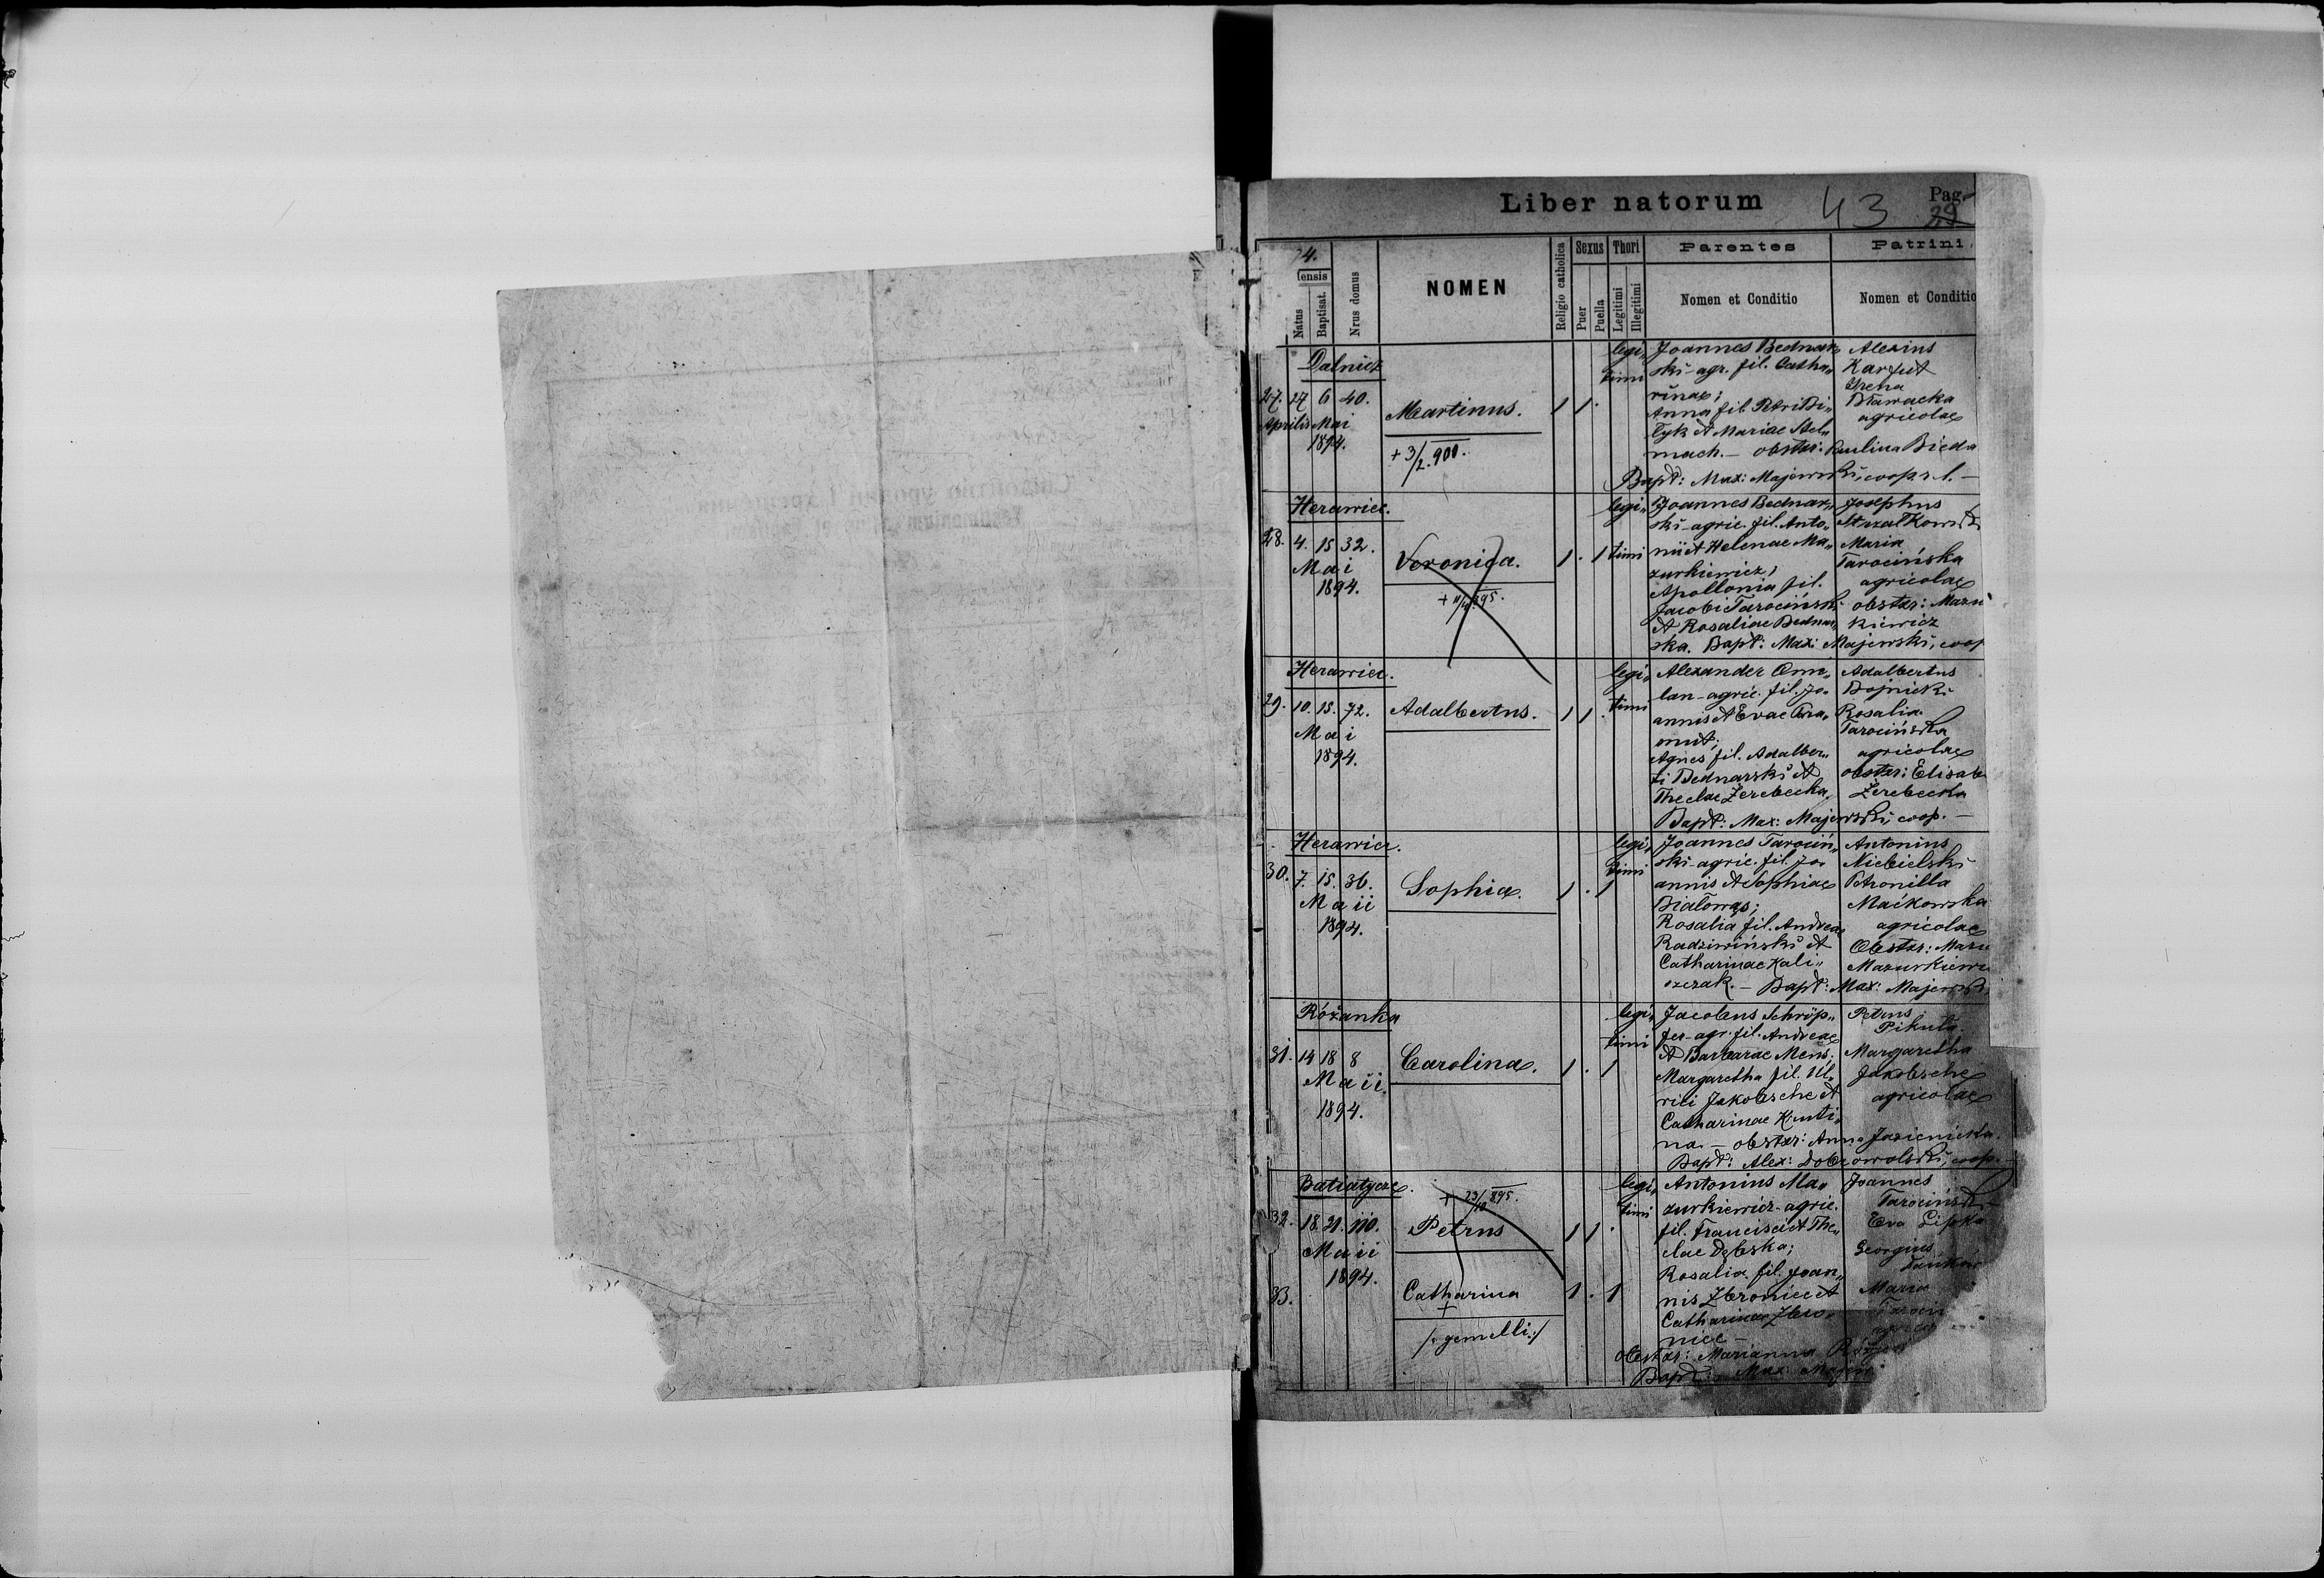 Liber natorum 43 Pag. 29
94.
Mensis
Natus
Baptisat.
Nrus domus
NOMEN
Religio catholica
Sexus
Puer
Puella
Thori
Legitimi
Illegitimi
Parentes
Nomen et Conditio
Patrini
Nomen et Conditio
Dalnicz
27. 27 6 40.
Aprilis Mai
1894.
Martinus.
+ 3/2. 900.
1 1 .
legi„
timi
Joannes Bednar„
ski - agr. fil. Catha„
rinae;
Anna fil. Petri Bi„
łyk et Mariae Stel„
mach. — obstr: Paulina Bieda
Bapt: Max: Majewski, coop. r. l. —
Alexius
Karfut
Irena
Dławacka
agricolae
Herawiec.
28. 4. 15 32.
Mai
1894.
Veronica.
+ 11/4 895.
1 . 1
legi„
timi
Joannes Bednar„
ski - agric. fil. Anto„
nii et Helenae Ma„
zurkiewicz,
Apollonia fil.
Jacobi Tarociński
et Rosaliae Bednar„
ska. Bapt: Max: Majewski, coop
Josephus
Strzałkowski
Maria
Tarocińska
agricolae
obstr: Mazu
kiewicz
Herawiec.
29. 10. 15. 72.
Mai
1894.
Adalbertus.
1 1 .
legi„
timi
Alexander Om„
lan - agric. fil. Jo„
annis et Evae
mut;
Agnes fil. Adalber„
ti Bednarski et
Theclae Żerebecka.
Bapt: Max: Majewski, coop. —
Adalbertus
Bojnicki
Rosalia
Tarocińska
agricolae
obstr: Elisab
Żerebecka
Herawiec.
30. 7. 15. 36.
Maii
1894.
Sophia.
1 . 1
legi„
timi
Joannes Tarociń„
ski - agric. fil. Jo„
annis et Sophiae
Białowąs;
Rosalia fil. Andreae
Radziwiński et
Catharinae Kali„
szczak. — Bapt: Max: Majewski
Antonius
Niebielski
Petronilla
Maćkowska
agricolae
Obstr: Maria
Mazurkiewi
Różanka
31. 14 18 8
Maii
1894.
Carolina.
1 . 1
legi„
timi
Jacobus Schröp„
fer - agr. fil. Andreae
et Barbarae Mens;
Margaretha fil. Ul„
rici Jakobsche et
Catharinae Kuuti„
na. — obstr: Anna Jazienicka.
Bapt: Alex: Dobrowolski, coop. —
Petrus
Pikuła.
Margaretha
Jakobsche
agricolae
Batiatycze.
32. 18. 21. 110.
Maii
1894.
+ 23/10 895.
Petrus
1 1 .
33.
Catharina
+
/: gemelli :/
1 . 1
legi„
timi
Antonius Ma„
zurkiewicz - agric.
fil. Francisci et The„
clae Dębska;
Rosalia fil. Joan„
nis Zbroniec et
Catharinae Zbro„
niec —
obstr: Marianna
Bapt: Max: Majew
Joannes
Tarociński
Eva Lipka
Georgius
Maria
Tarociń
agricol